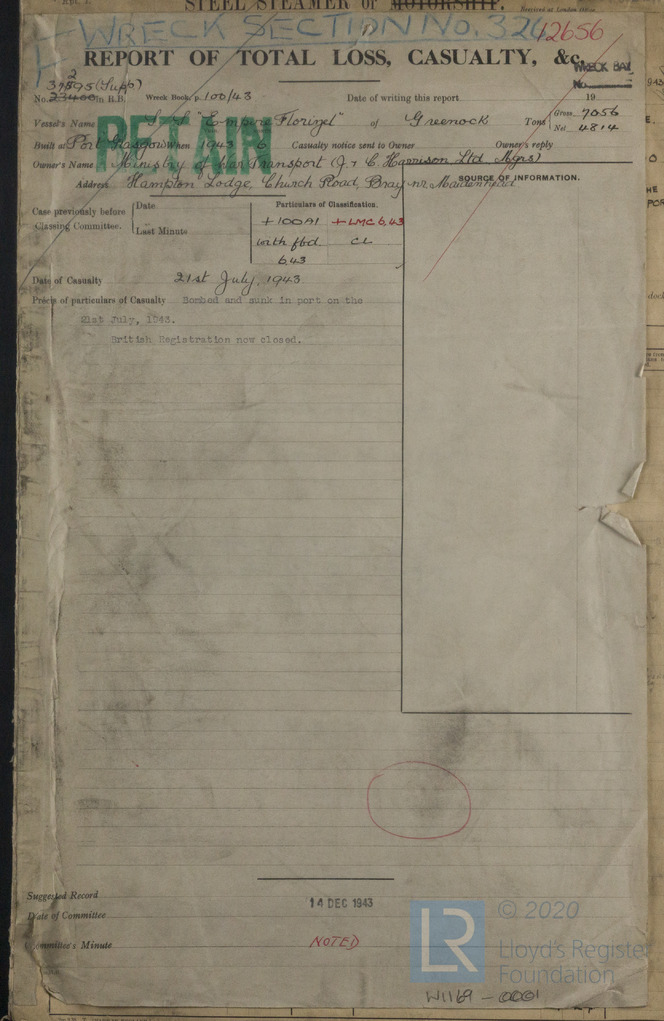 STEEL STEAMER OF MOTORSHIP.
Received at London Office
WRECK SECTION No. 324
12656
REPORT OF TOTAL LOSS, CASUALTY, &c.
WRECK BAY
No.
(Supp)
No. 23400 in H.B. Wreck Book, p. 100/43 Date of writing this report 19
Vessel's Name S.S. "Empire Florizel" of Greenock Tons Gross 7056
Net 4814
RETAIN
Built at Port Glasgow When 1943 6 Casualty notice sent to Owner Owner's reply
Owner's Name Ministry of War Transport (J. & C Harrison Ltd Mgrs)
Address Hampton Lodge, Church Road, Bray nr Maidenhead
SOURCE OF INFORMATION.
Case previously before Classing Committee.
Date
Last Minute
Particulars of Classification.
+100A1 +LMC 6,43
with fbd CL
6.43
Date of Casualty 21st July, 1943
Précis of particulars of Casualty Bombed and sunk in port on the
21st July, 1943.
British Registration now closed.
Suggested Record
Date of Committee 14 DEC 1943
Committee's Minute NOTED
LR
© 2020
Lloyd's Register
Foundation
W1169 - 0001